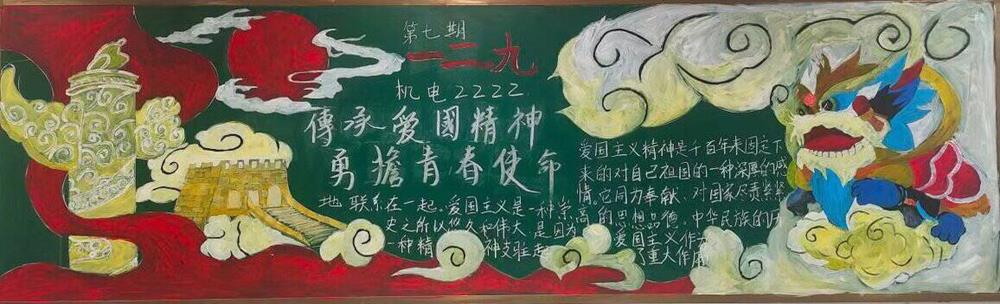 第七期
一二·九
机电2222
傳承爱國精神
勇擔青春使命
爱国主义精神是千百年来固定下
来的对自己祖国的一种深厚的感
情。它同力奉献、对国家尽责紧紧
地联系在一起。爱国主义是一种崇高的思想品德,中华民族的历
史之所以悠久和伟大,是因为爱国主义作为
一种精神支柱起了重大作用